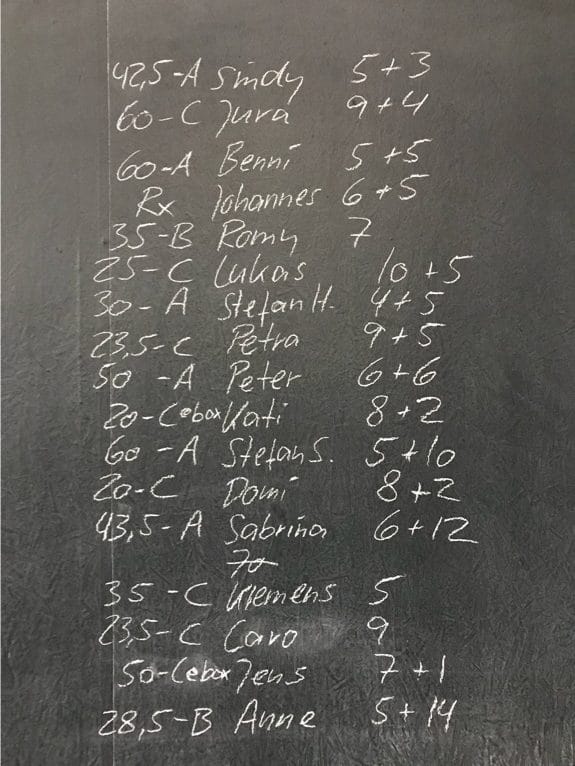 42,5-A Sindy 5+3
60-C Jura 9+4
60-A Benni 5+5
Rx Johannes 6+5
35-B Romy 7
25-C Lukas 10+5
30-A Stefan H. 4+5
23,5-C Petra 9+5
50-A Peter 6+6
20-C ebox Kati 8+2
60-A Stefan S. 5+10
20-C Domi 8+2
43,5-A Sabrina 6+12
35-C Klemens 5
23,5-C Caro 9
50-C ebox Jens 7+1
28,5-B Anne 5+14